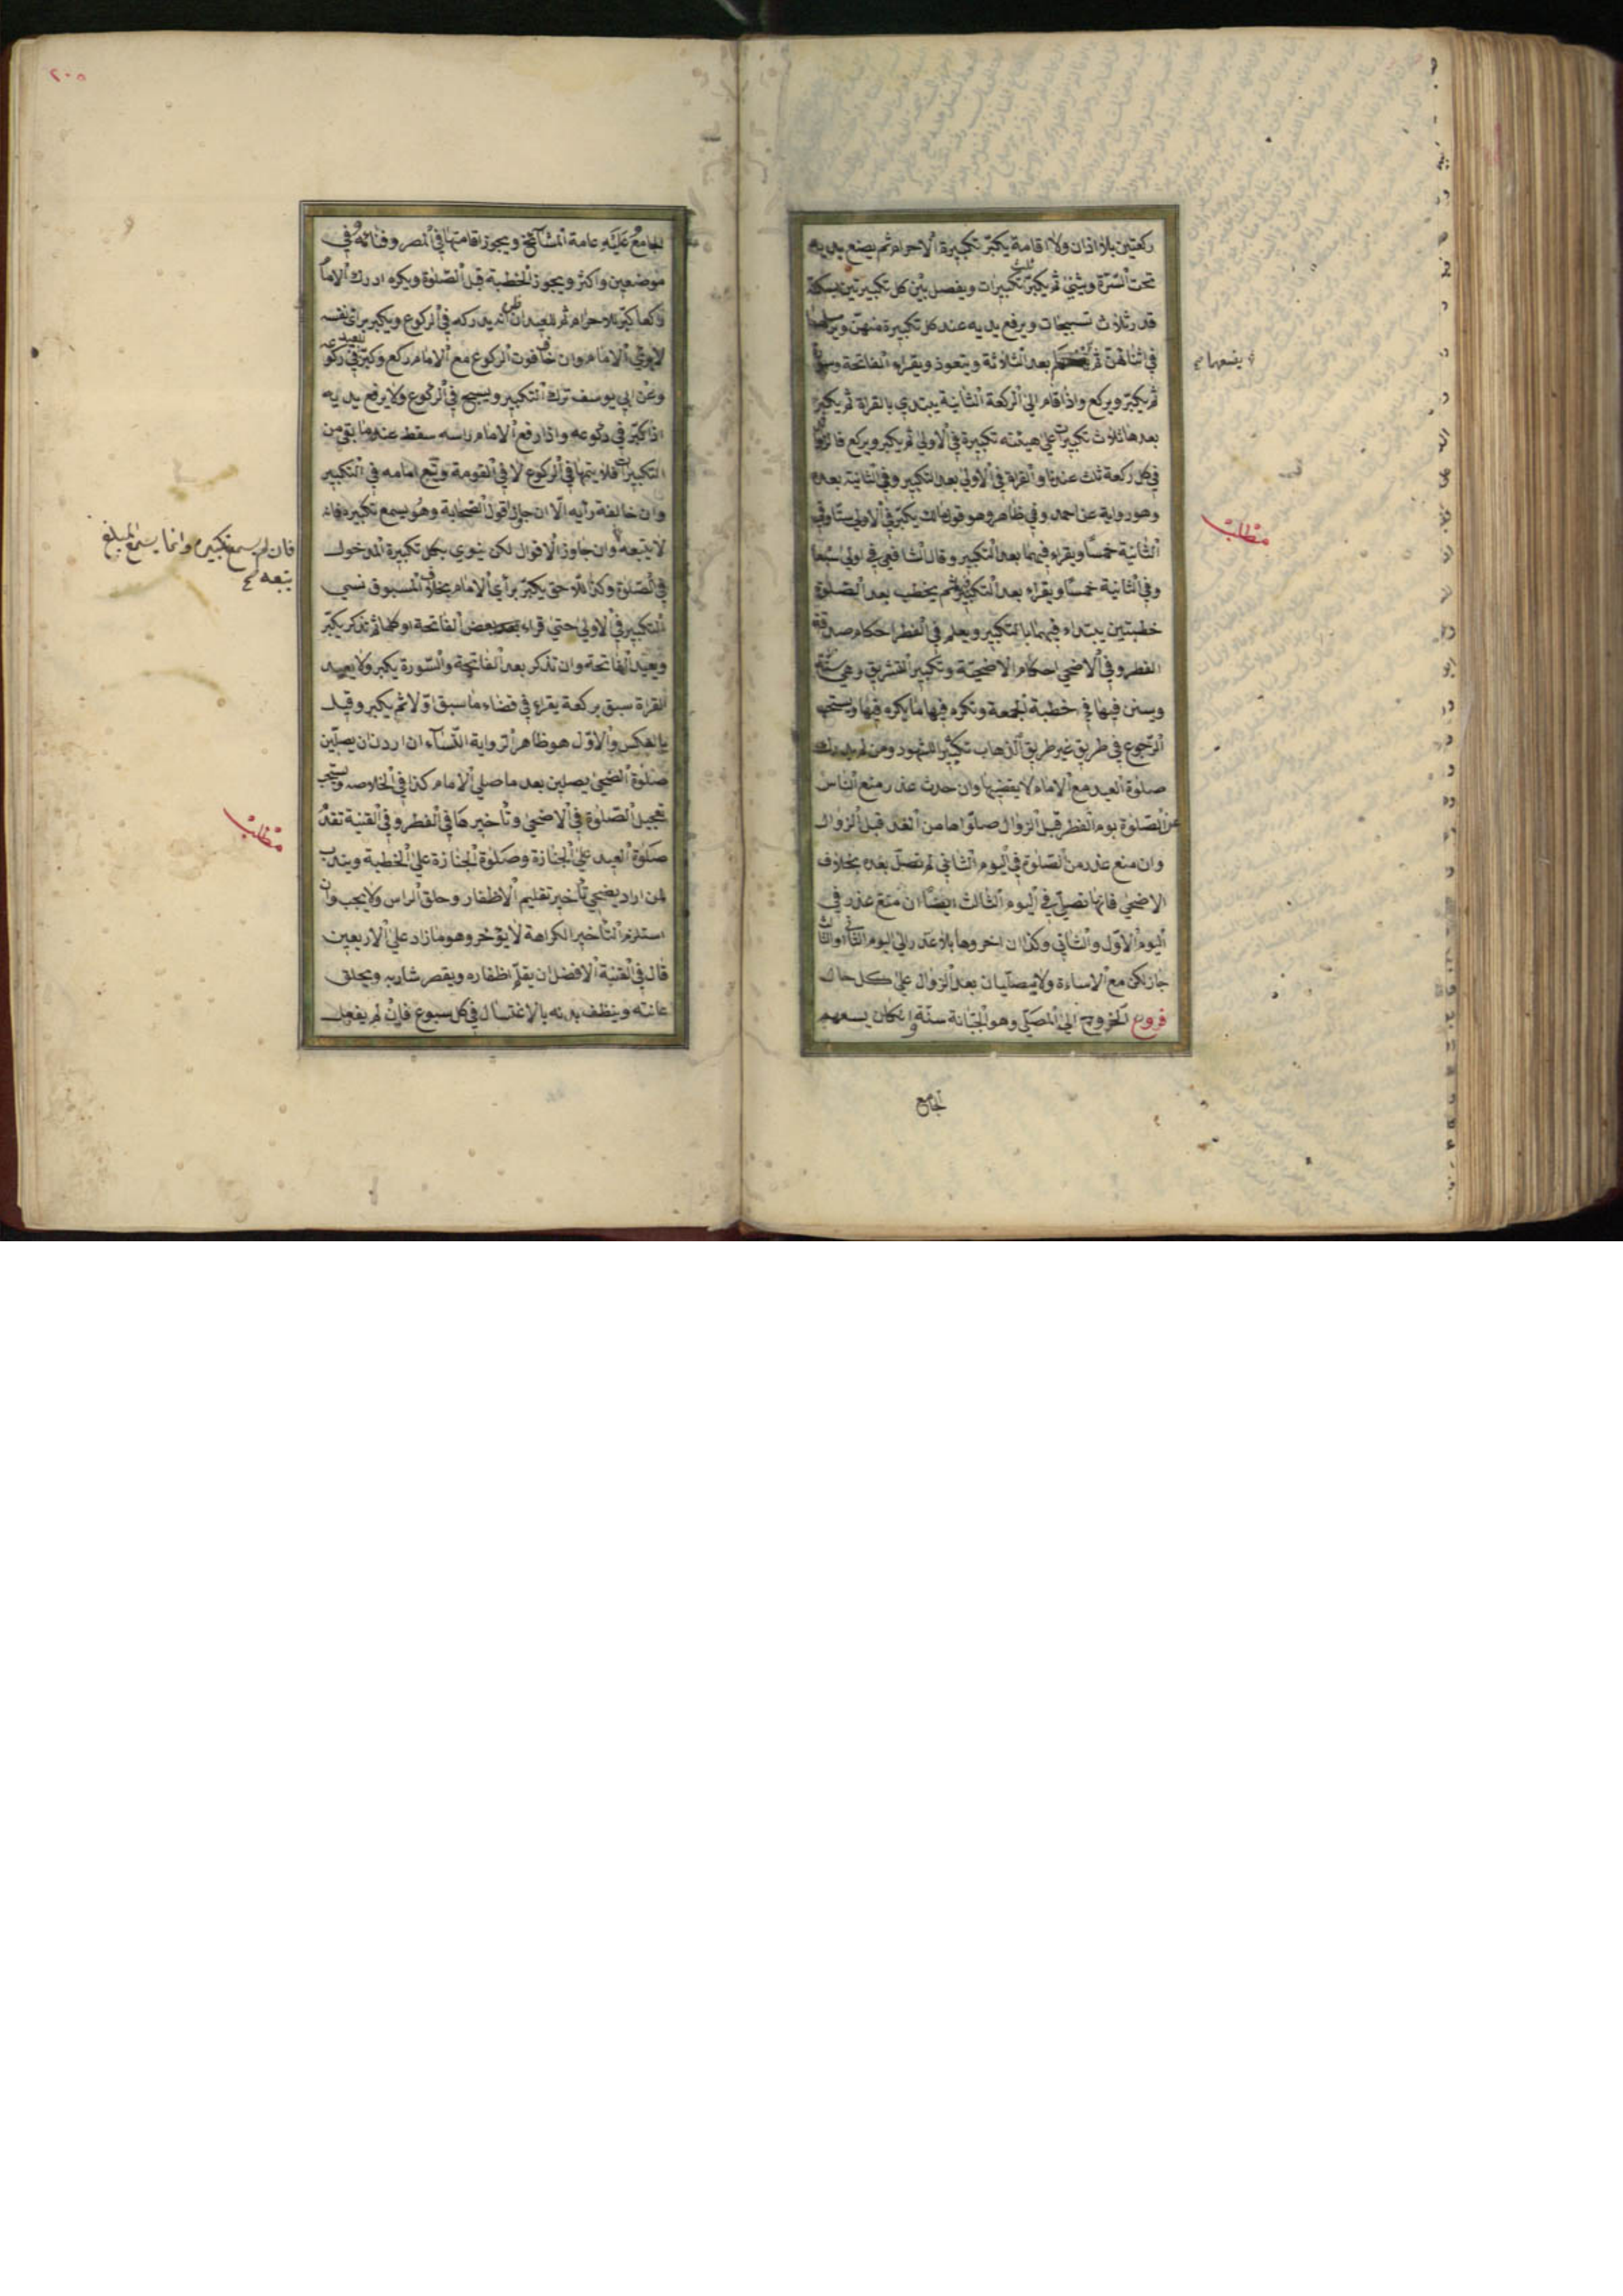 ركعتين بلا اذان ولا اقامة يكبر تكبيرة الاحرام ثم يضع يديه
تحت السرة ويثني ثم يكبر ثلث تكبيرات ويفصل بين كل تكبيرتين بسكتة
قدر ثلاث تسبيحات ويرفع يديه عند كل تكبيرة منهن ويرسلهما
في اثنائهن ثم يضعهما بعد الثلاثة ويتعوذ ويقراء الفاتحة وسورة
ثم يكبر ويركع واذا قام الى الركعة الثانية يبتدي بالقراة ثم يكبر
بعدها ثلاث تكبيرات على هيئته تكبيرة في الاولى ثم يكبر ويركع
في كل ركعة ثلث عندنا والقراة في الاولى بعد التكبير وفي الثانية بعده
وهو رواية عن احمد وفي ظاهر وهو قول مالك يكبر في الاولى ستا وفي
الثانية خمسا ويقراء فيهما بعد التكبير وقال الشافعي في اولى سبعا
وفي الثانية خمسا ويقراء بعد التكبير ثم يخطب بعد الصلوة
خطبتين يبتداء فيهما بالتكبير ويعلم في الفطر احكام صدقة
الفطر وفي الاضحى احكام الاضحية وتكبير التشريق وهي سنة
ويسن فيها في خطبة الجمعة وتكره فيها ما يكره فيها ويستحب
الرجوع في طريق غير طريق الذهاب تكثيرا للشهود ومن لم يدرك
صلوة العيد مع الامام لا يقضيها وان حدث عذر منع الناس
عن الصلوة يوم الفطر قبل الزوال صلوها من الغد قبل الزوال
وان منع عذر من الصلوة في اليوم الثاني لم تصل بعده بخلاف
الاضحى فانها تصلى في اليوم الثالث ايضا ان منع عذر في
اليوم الاول والثاني وكذا ان اخروها بلا عذر الى اليوم الثاني او الثالث
جاز لكن مع الاساءة ولا يصليان بعد الزوال على كل حال
فروع الخروج الى المصلى وهو الجبانة سنة وان كان يسعهم
الجامع
يضعهما
مطلب
٢٠٥
الجامع عليه عامة المشائخ ويجوز اقامتها في المصر وفنائه في
موضعين واكثر ويجوز الخطبة قبل الصلوة ويكره ادرك الامام
راكعا كبر للاحرام ثم للعيد ان ظن انه يدركه في الركوع ويكبر براى نفسه
لا براى الامام وان خاف فوت الركوع مع الامام ركع وكبر للعيد في ركوعه
وعن ابي يوسف ترك التكبير ويسبح في الركوع ولا يرفع يديه
اذا كبر في ركوعه واذا رفع الامام راسه سقط عنه ما بقي من
التكبيرات فلا يتمها في الركوع لا في القومة ويتبع امامه في التكبير
وان خالفه رأيه الا ان جاوز اقول الصحابة وهو يسمع تكبيره فانه
لا يتبعه وان جاوز الاقوال لكن ينوي بكل تكبيرة الدخول
في الصلوة وكذا اللاحق يكبر برأي الامام بخلاف المسبوق نسي
التكبير في الاولى حتى قراء بعض الفاتحة او كلها ثم تذكر يكبر
ويعيد الفاتحة وان تذكر بعد الفاتحة والسورة يكبر ولا يعيد
القراة سبق بركعة يقراء في قضاء ما سبق اولا ثم يكبر وقيل
بالعكس والاول هو ظاهر الرواية النساء ان اردن ان يصلين
صلوة الضحى يصلين بعد ما صلى الامام كذا في الخلاصه ويستحب
تعجيل الصلوة في الاضحى وتأخيرها في الفطر وفي القنية تقدم
صلوة العيد على الجنازة وصلوة الجنازة على الخطبة ويندب
لمن اراد يضحي تأخير تقليم الاظفار وحلق الراس ولا يجب وان
استلزم التأخير الكراهة لا يؤخر وهو ما زاد على الاربعين
قال في القنية الافضل ان يقلم اظفاره ويقصر شاربه ويحلق
عانته وينظف بدنه بالاغتسال في كل سبوع فان لم يفعل
فان لم يسمع تكبيره وانما يسمع المبلغ
يتبعه
مطلب